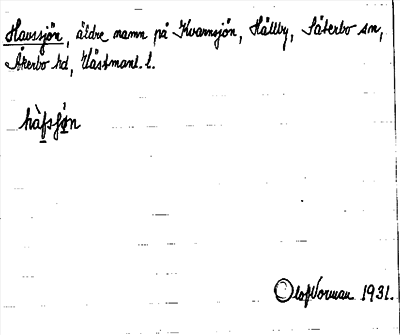 Havssjön, äldre namn på Kvarnsjön, Hällby, Säterbo sn,
Åkerbo hd, Västmanl. l.
hàfsjön
Olof Norman 1931.